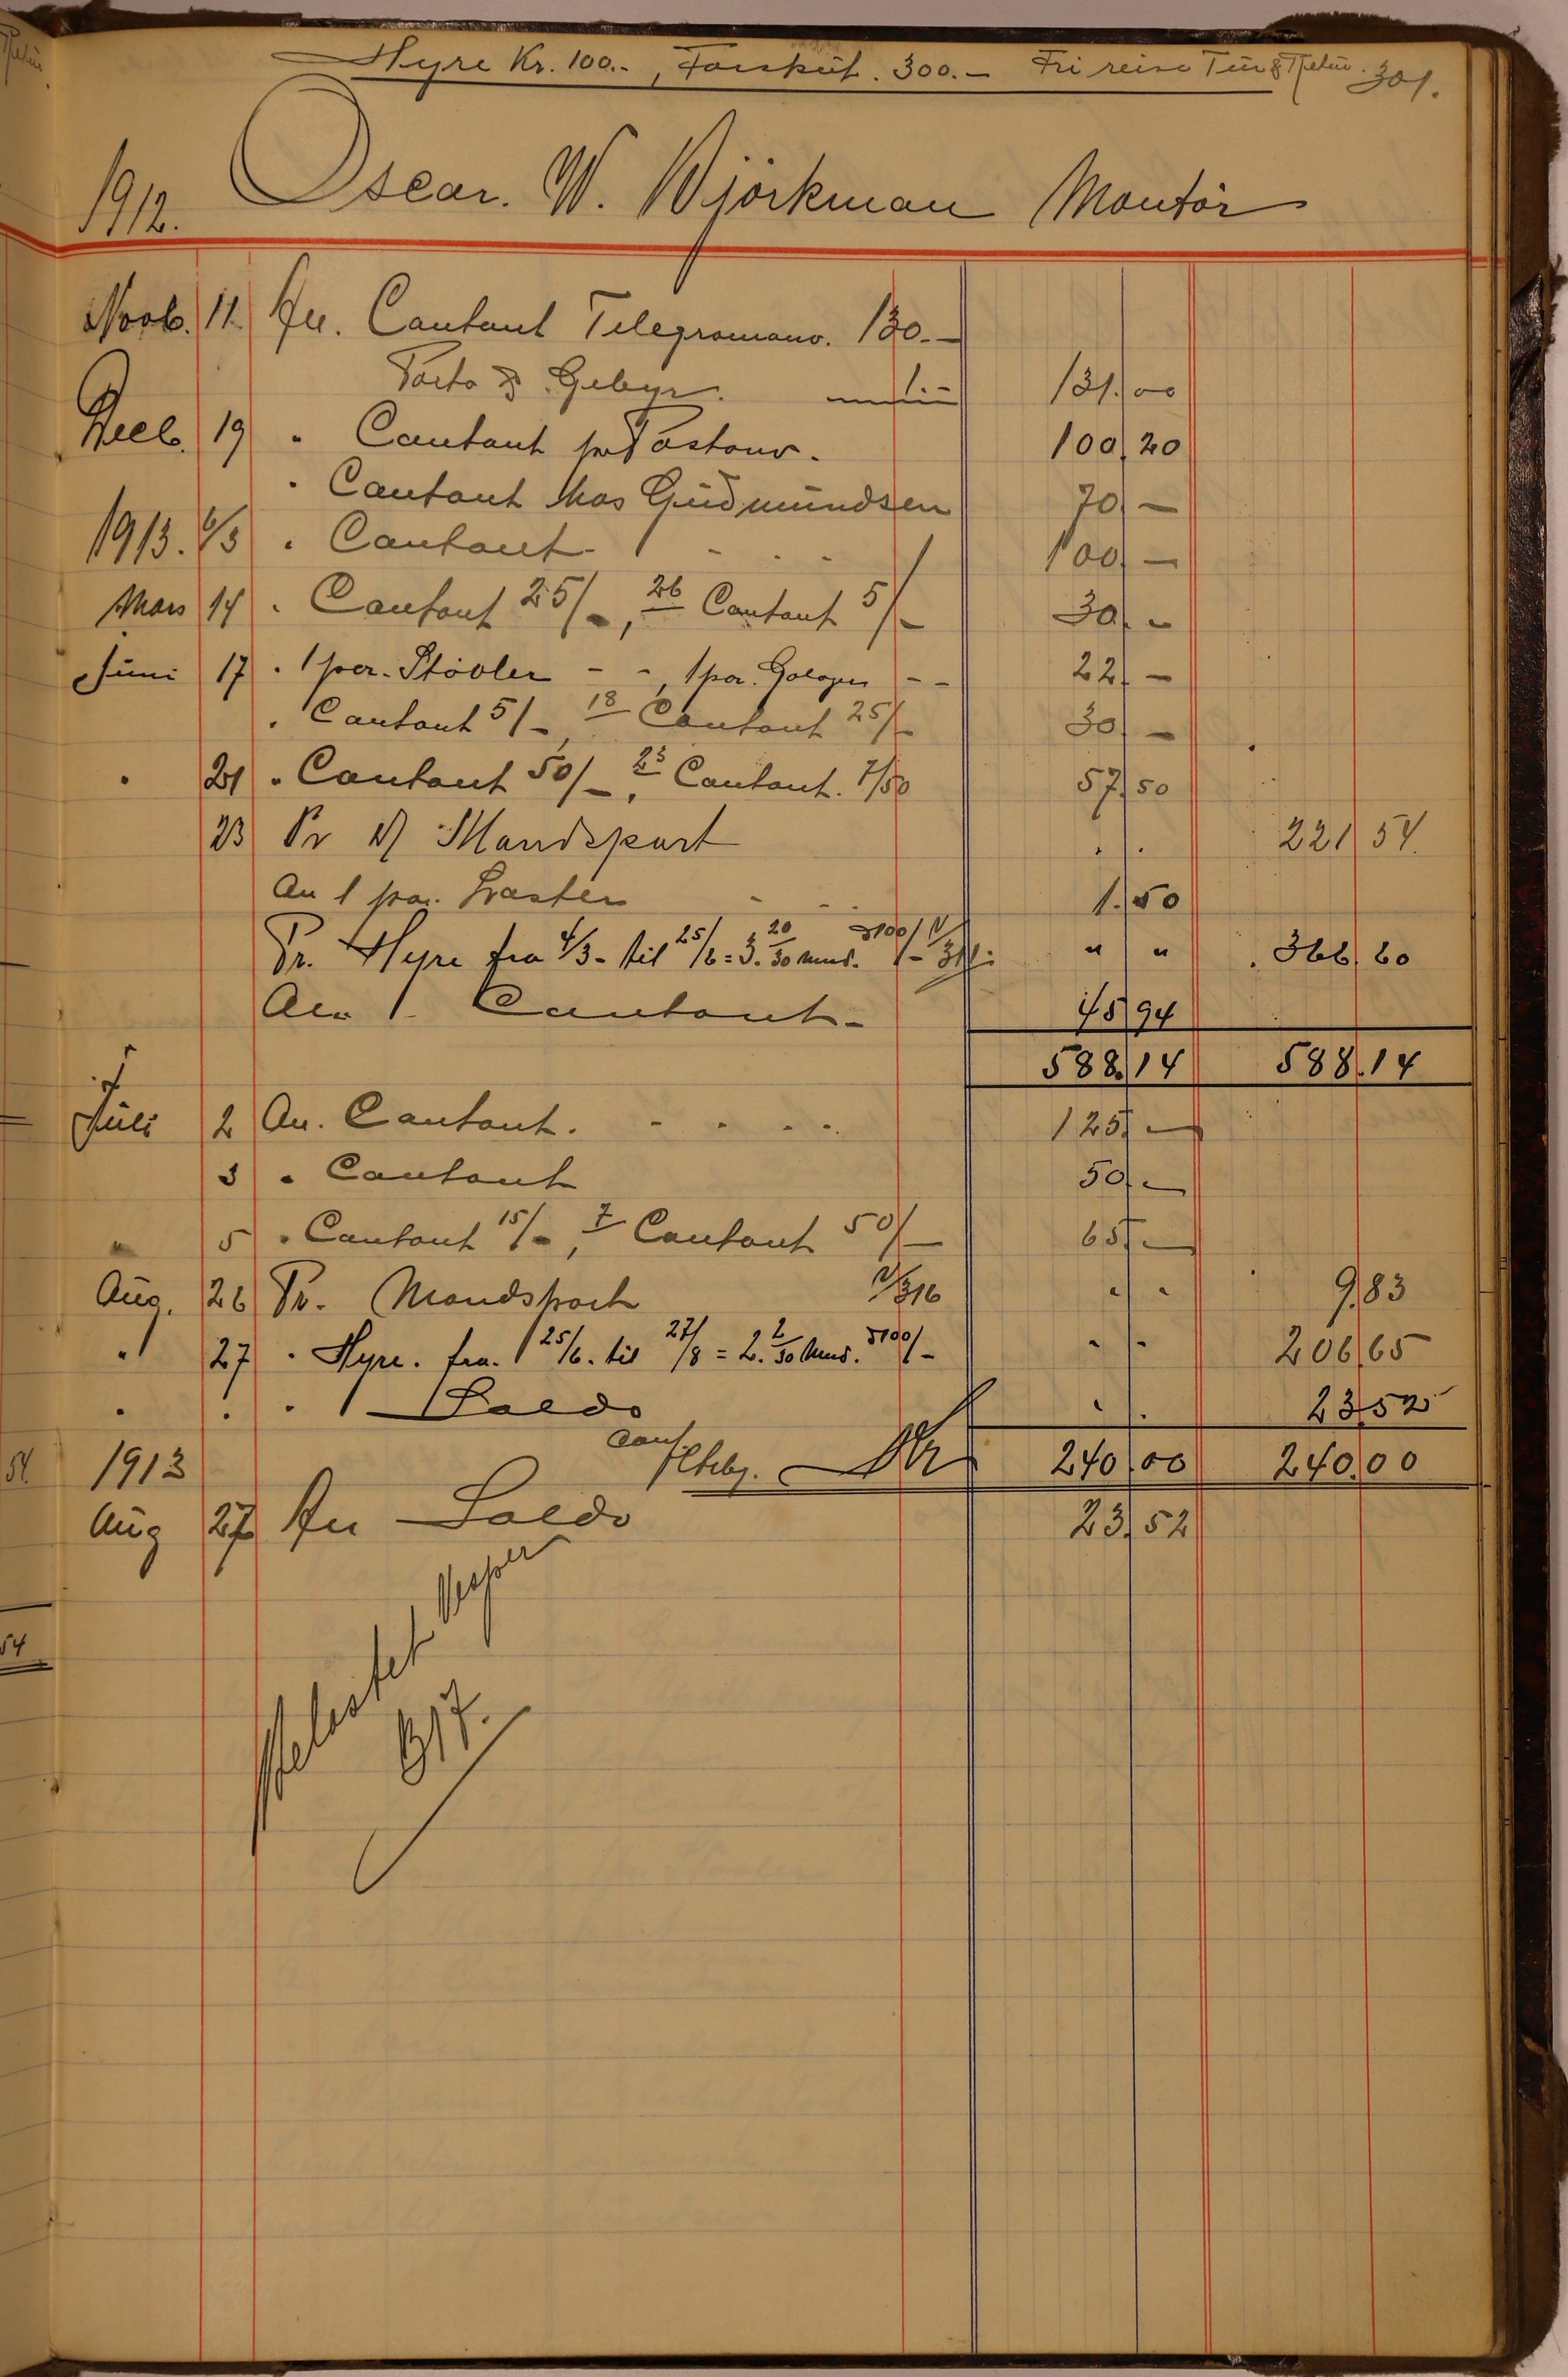 Hyre Kr. 100.-, Forskut. 300.- Fri reise Tur & Retur. 301.
1912. Oscar. W. Björkman Montör
Novb. 11. An. Contant Telegramanv. 130.-
Porto & Gebyr. 1.- 131.00
Decb. 19 " Contant pr Postanv. 100.20
" Contant hos Gudmundsen 70.-
1913. 6/3 " Contant - - - - 100.-
Mars 14 " Contant 25/-, 26 Contant 5/- 30.-
Juni 17 " 1 par. Stövler - -, 1 par. Galoger - - 22.-
" Contant 5/-, 18 Contant 25/- 30.-
" 21 " Contant 50/-, 23 Contant. 7/50 57.50
23 Pr Mandspart " " 221 54.
An 1 par. Træsten - - - 1.50
Pr. Hyre fra 4/3 - til 25/6 = 3. 20/30 mnd. à 100/- V/311. " " 366.60
An Contant - 45 94
588.14 588.14
Juli 2 An. Contant. - - - -
125.-
3 " Contant 50.-
" 5 " Contant 15/-, 7 Contant 50/- 65.-
Aug. 26 Pr. Mandspart V/316 " " 9.83
" 27 " Hyre. fra. 25/6. til 27/8 = 2. 2/30 Mnd. à 100/- " " 206 65
" " " Saldo " " 23 52
1913 Conf. Kr 240.00 240.00
Aug 27 An Saldo 23.52
Belastet Vesper
1917.
54.
54